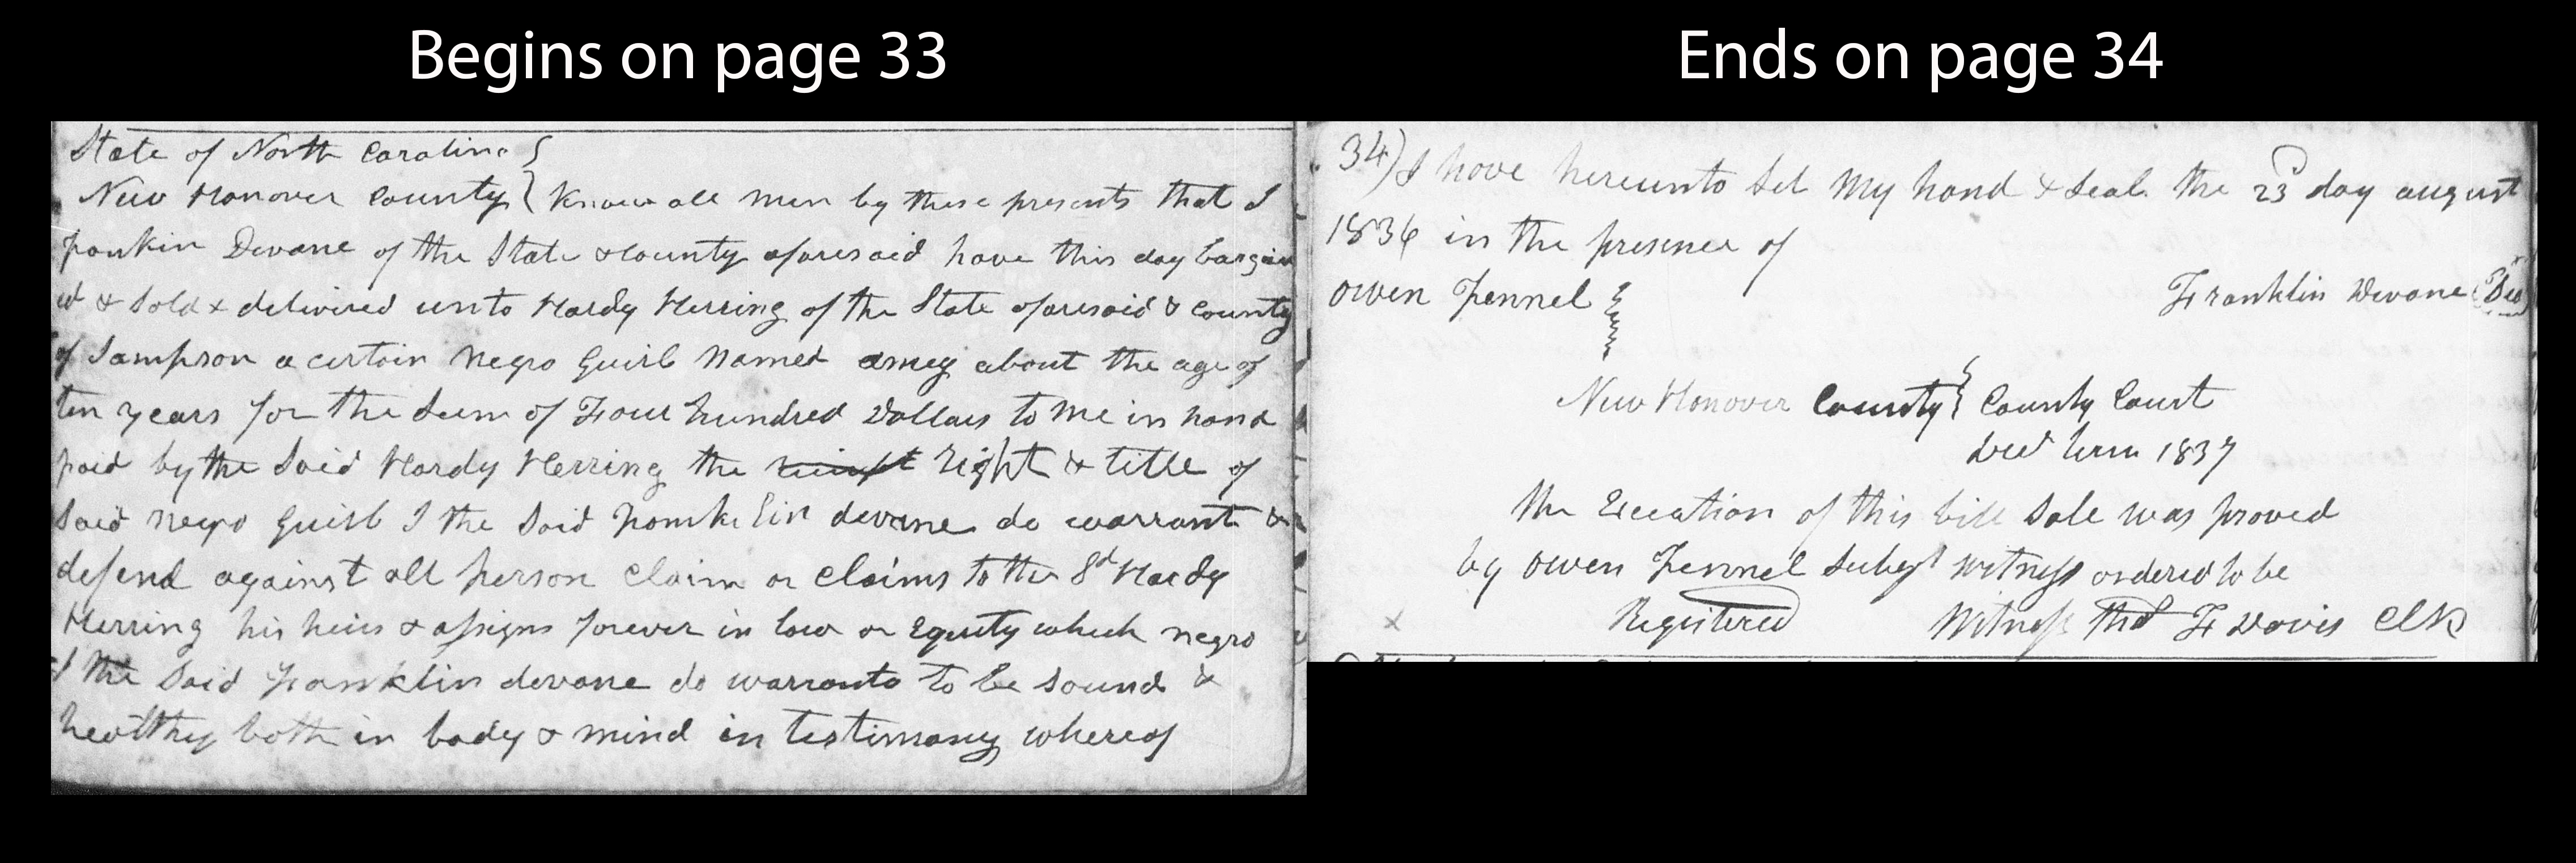 Begins on page 33
State of North Carolina
New Hanover County Know all men by these presents that I
Devane of the State & County aforesaid have this day bargain
ed & Sold & delivered unto Hardy Herring of the State aforesaid & County
of Sampson a certain negro Guirl Named amey about the age of
ten years for the Sum of Four hundred Dollars to me in hand
paid by the Said Hardy Herring the Right & title of
Said negro Guirl I the Said devane do warrant &
defend against all person claim or claims to the Sd Hardy
Herring his heirs & assigns forever in law or Equity which negro
I the Said Franklin devane do warranto to be Sound &
healthy both in body & mind in testimony whereof
Ends on page 34
34) I have hereunto Set My hand & Seal the 23d day august
1836 in the presence of
Owen Fennel
Franklin Devane
New Hanover County County Court
Term 1837
The Execution of this bill Sale was proved
by Owen Fennel witness ordered to be
Registered Witness F Davis Clk
x